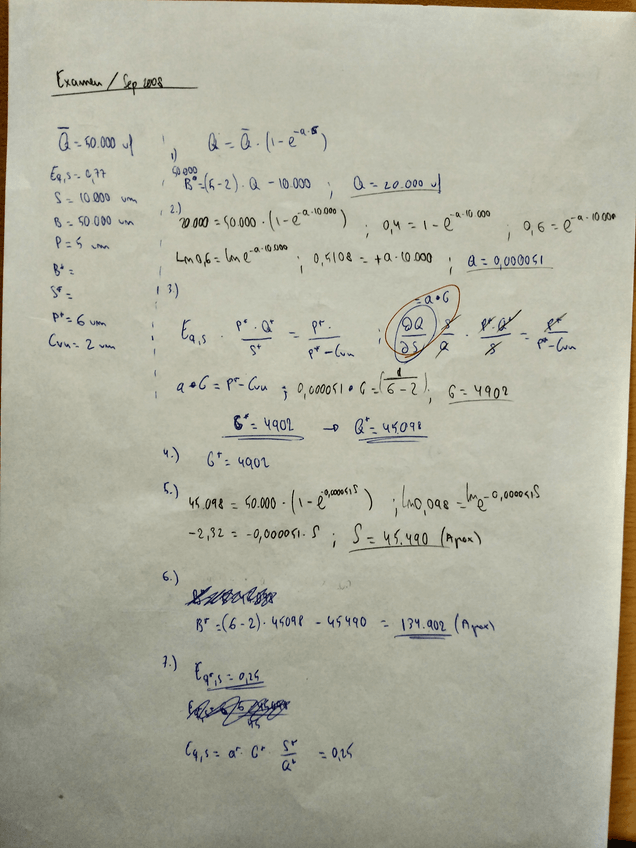 Examen / Sep 2008
Q̄ = 50.000 u/
Eq,s = 0,77
S = 10.000 um
B = 50.000 um
P = 5 um
B* =
S* =
P* = 6 um
Cvu = 2 um
Q = Q̄ · (1 - e^-a·S)
1)
50.000
B* = (5-2) · Q - 10.000 ; Q = 20.000 u/
2.)
20.000 = 50.000 · (1 - e^-a·10.000) ; 0,4 = 1 - e^-a·10.000 ; 0,6 = e^-a·10.000
Ln 0,6 = ln e^-a·10.000 ; 0,5108 = +a·10.000 ; a = 0,000051
3.)
= a·G
Eq,s · P*·Q*/S* = P*/P*-Cvu ; ∂Q/∂S · S/Q · P*·Q*/S = P*/P*-Cvu
a·G = P*-Cvu ; 0,000051 · G = (1/6-2) ; G = 4902
G* = 4902 → Q* = 45.098
4.)
G* = 4902
5.)
45.098 = 50.000 · (1 - e^-0,000051S) ; ln 0,098 = ln e^-0,000051S
-2,32 = -0,000051 · S ; S = 45.490 (Apox)
6.)
B* = (6-2) · 45098 - 45490 = 134.902 (Apox)
7.)
Eq*,s = 0,25
Eq,s = a* · G* · S*/Q* = 0,25